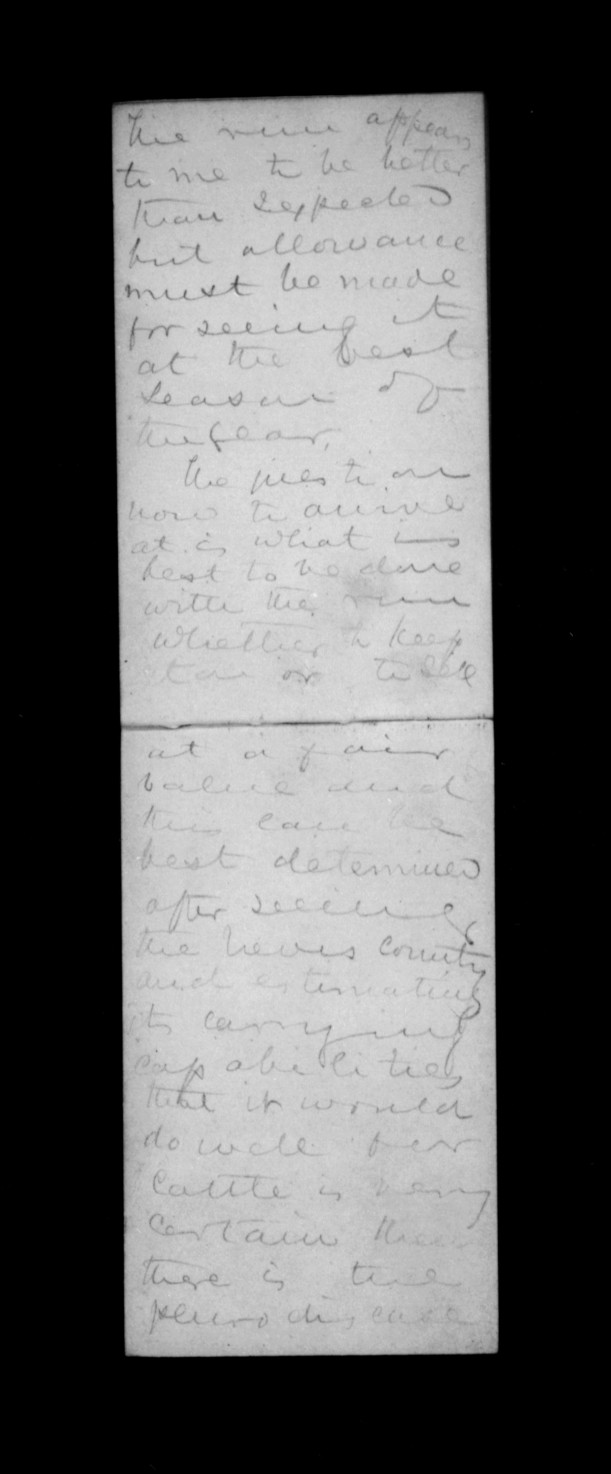 The run appears
to me to be better
than I expected
but allowance
must be made
for seeing it
at the best
season of
the year,
The question
now to arrive
at is what is
best to be done
with the run
Whether to keep
on or to sell
at a fair
value and
this can be
best determined
after seeing
the Country
and estimating
its carrying
capabilities
that it would
do well for
Cattle is very
certain then
there is the
pleuro disease